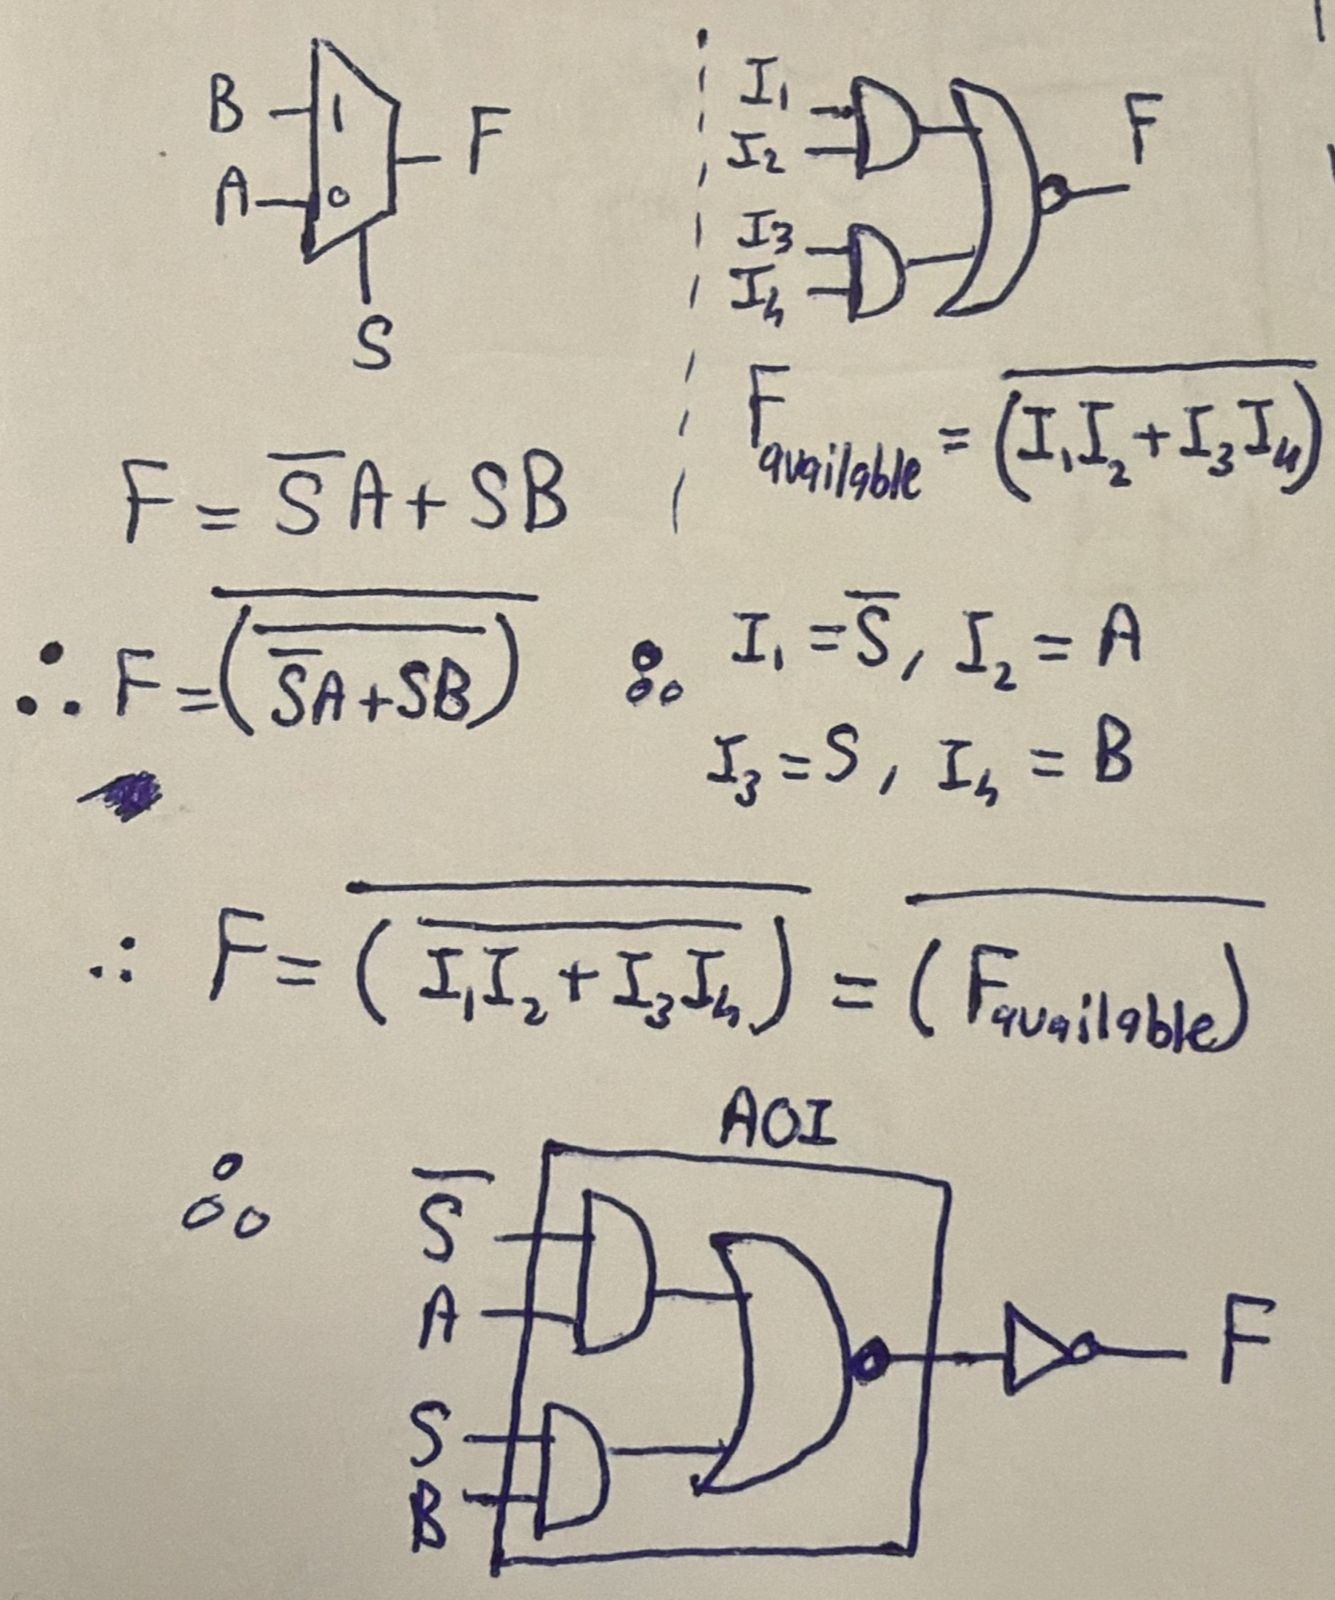 B 1 F
A 0
S
I₁ F
I₂
I₃
I₄
F = S̅A + SB
F available = \overline{(I₁I₂ + I₃I₄)}
∴ F = \overline{(\overline{S̅A + SB})}
∴ I₁ = S̅, I₂ = A
I₃ = S, I₄ = B
∴ F = \overline{(\overline{I₁I₂ + I₃I₄})} = \overline{(F available)}
AOI
∴ S̅
A
F
S
B